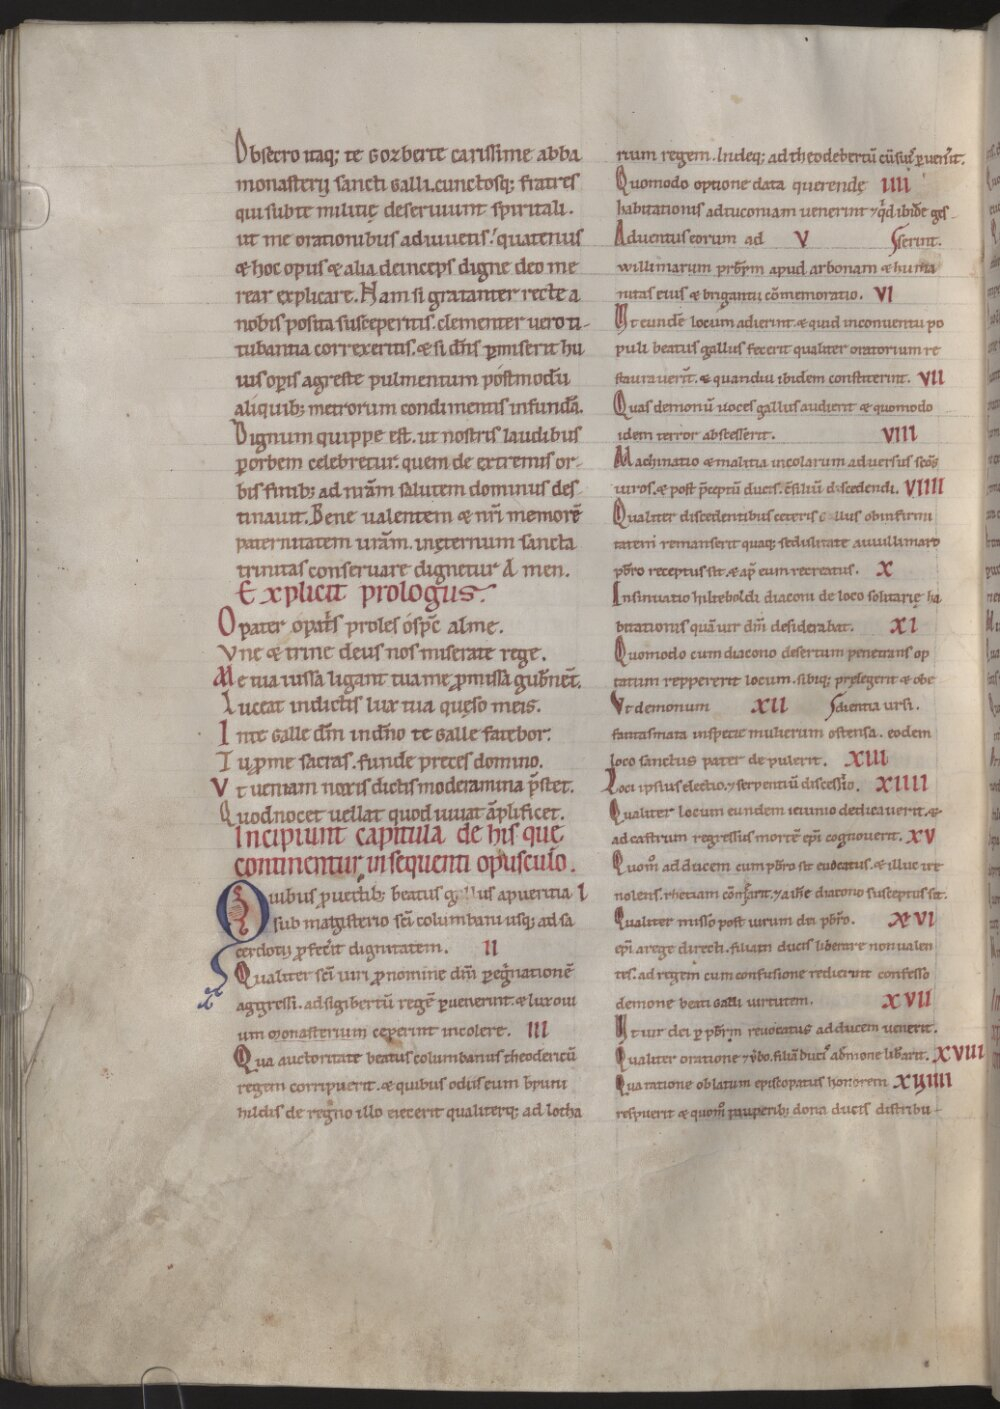 Obsecro itaq; te Gozberte carissime abba
monasterij sancti Galli. cunctosq; fratres
qui sub te militię deseruiunt spiritali.
ut me orationibus adiuuetis! quatenus
& hoc opus & alia deinceps digne deo me
rear explicare. Nam si gratanter recte a
nobis posita susceperitis. clementer uero ti-
tubantia correxeritis. & si dñs pmiserit hu
uis opis agreste pulmentum postmodū
aliquib; metrorum condimentis infundā.
Dignum quippe est. ut nostris laudibus
porbem celebretur. quem de extremis or-
bis finib; ad nrām salutem dominus des-
tinauit. Bene ualentem & nrī memorē
paternitatem urām. inęternum sancta
trinitas conseruare dignetur Amen.
Explicit prologus.
O pater o patis proles o spc alme.
Vne & trine deus nos miserate rege.
Me tua iussa ligant tua me pmissa gubnent.
Luceat indictis lux tua quęso meis.
Inte Galle dm indno te Galle fatebor.
Tu pme sacras. funde preces domino.
Vt ueniam noxis dictis moderamina pstet.
Quod nocet uellat quod iuuat amplificet.
Incipiunt capitula de his que
continentur in sequenti opusculo.
Quibus puectib; beatus gallus apueritia I
sub magisterio sci columbani usq; ad sa
cerdotij pfecit dignitatem. II
Qualiter sci uiri pro nomine dni pegnationē
aggressi. ad sigibertū regē puenerint. & luxoui
um monasterium ceperint incolere. III
Qua auctoritate beatus columbanus theodericū
regem corripuerit. & quibus odiis eum bruni
hildis de regno illo eiecerit qualiterq; ad lotha
rium regem. Indeq; ad theodebertū cū suis puenerit.
Quomodo optione data querendę IIII
habitationis ad tuconiam uenerint 7 qd ibide ges-
Aduentus eorum ad V sserint.
willimarum prbrm apud arbonam & huma
nitas eius & brigantii cōmemoratio. VI
Vt eundē locum adierint. & quid inconuentu po
puli beatus gallus fecerit qualiter oratorium re
staurauerit. & quandiu ibidem constiterint. VII
Quas demonū uoces gallus audierit & quomodo
idem terror abscesserit. VIII
Machinatio & malitia incolarum aduersus scos
uiros. & post pceptū ducis. csiliū discedendi. VIIII
Qualiter discedentibus ceteris gallus ob infirmi
tatem remanserit quaq; sedulitate a uuillimaro
pbro receptus sit. & ap eum recreatus. X
Insinuatio hilteboldi diaconi de loco solitarię ha
bitationis quā uir dni desiderabat. XI
Quomodo cum diacono desertum penetrans op
tatum reppererit locum. sibiq; pręlegerit & obe
Vt demonum XII Sdientia ursi.
fantasmata inspecie mulierum ostensa. eodem
loco sanctus pater depulerit. XIII
Loci ipsius electio. 7 serpentiū discessio. XIIII
Qualiter locum eundem ieiunio dedicauerit. &
ad castrum regressus mortē epi cognouerit. XV
Quom ad ducem cum pbro sit euocatus. & illuc ire
nolens. rhetiam cōfugerit. 7 a ihne diacono susceptus sit.
Qualiter misso post uirum dei pbro. XVI
epi a rege directi. filiam ducis liberare non ualen
tes. ad regem cum confusione redierint confesso
demone beati Galli uirtutem. XVII
Vt uir dei p pbrm reuocatus ad ducem uenerit.
Qualiter oratione 7 ubo. filiā ducis a demone librarit. XVIII
Qua ratione oblatum episcopatus honorem XVIIII
respuerit & quom pauperib; dona ducis distribu-